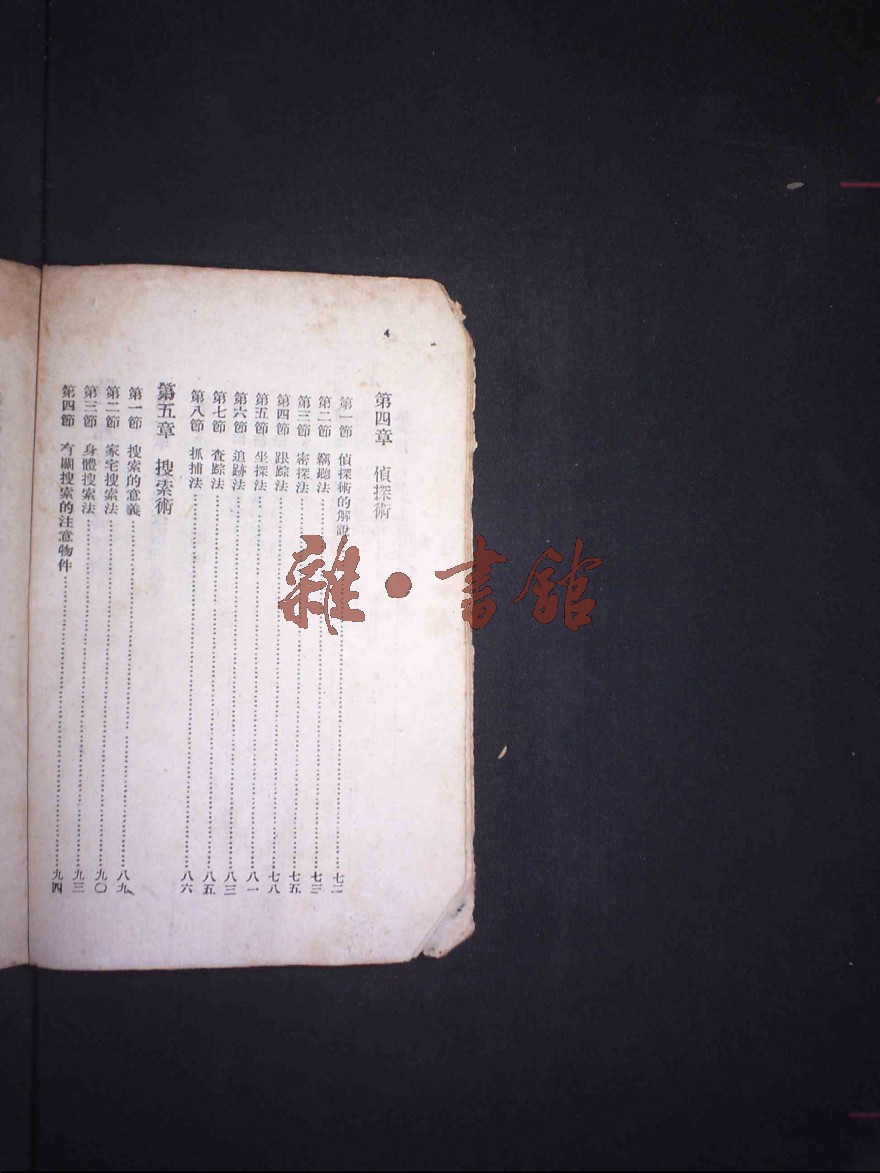 4
第四章 偵探術
第一節 偵探術的解說……七二
第二節 竊聽法……七三
第三節 密探法……七五
第四節 跟踪法……七八
第五節 坐探法……八一
第六節 追跡法……八三
第七節 查踪法……八五
第八節 抓捕法……八六
第五章 搜索術
第一節 搜索的意義……八九
第二節 家宅搜索法……九〇
第三節 身體搜索法……九三
第四節 有關搜索的注意物件……九四
雜·書館